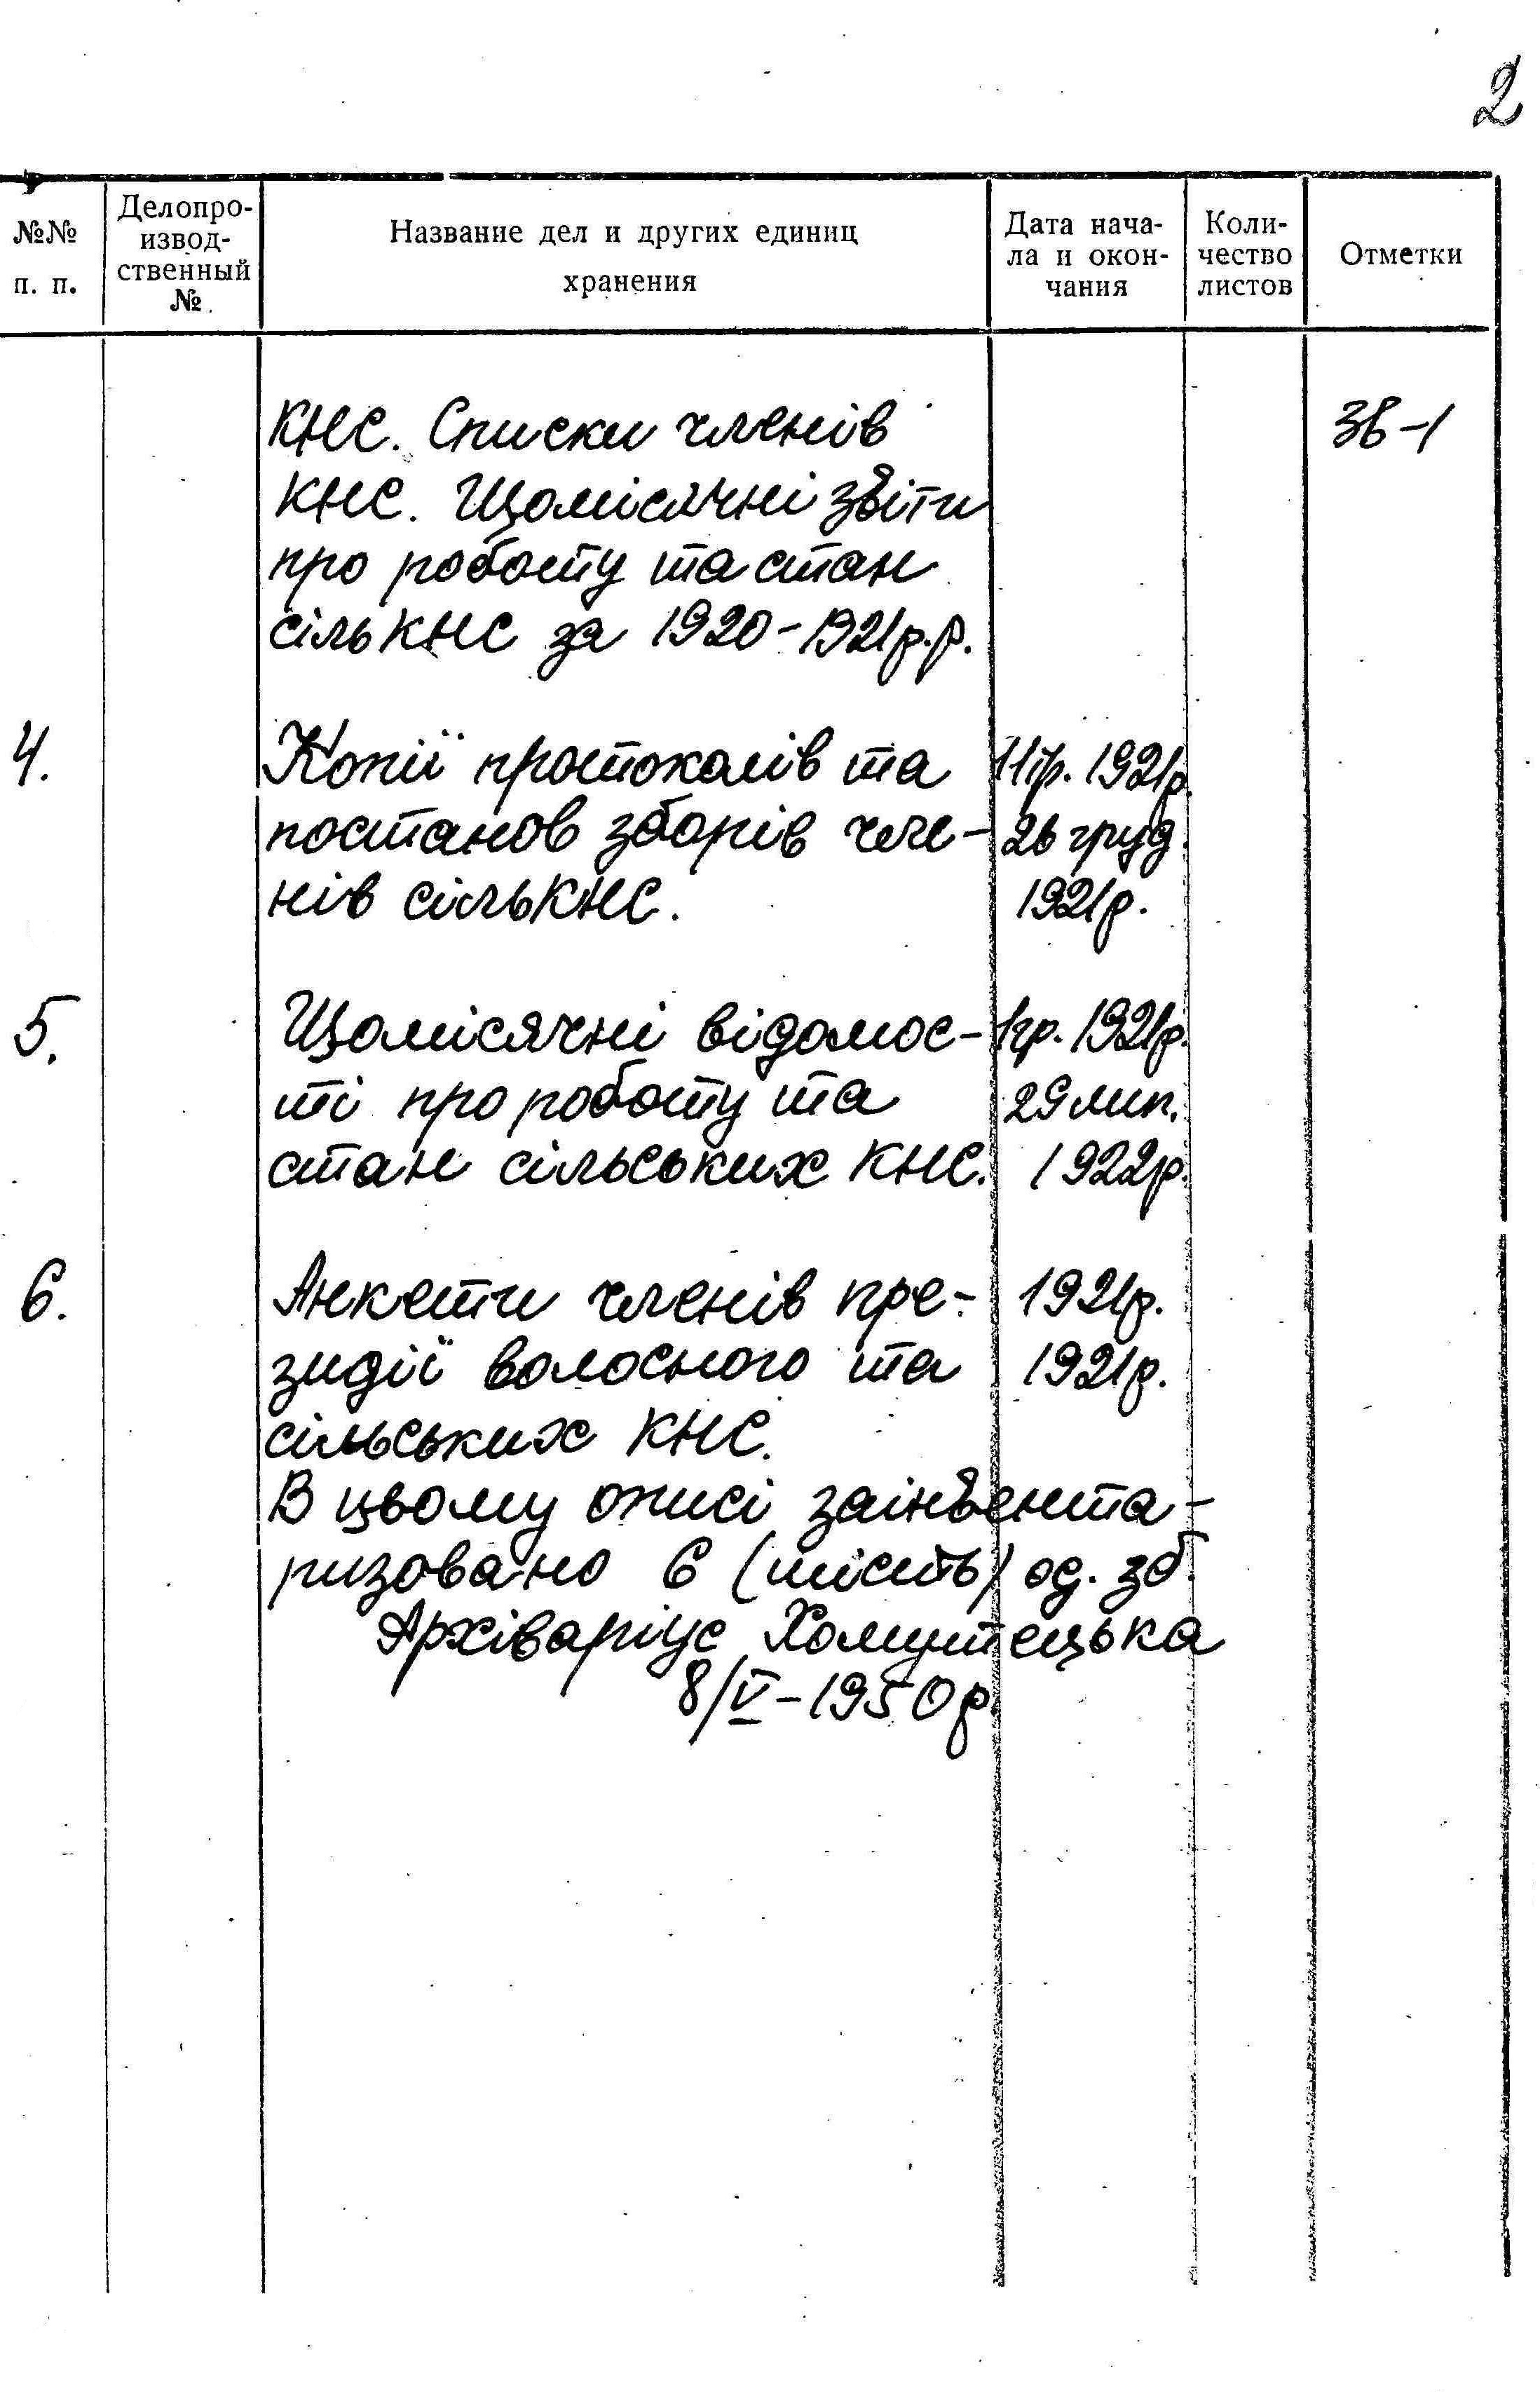 2
№№ п. п.
Делопро-
извод-
ственный
№
Название дел и других единиц
хранения
Дата нача-
ла и окон-
чания
Коли-
чество
листов
Отметки
КНС. Списки членів
КНС. Щомісячні звіти
про роботу та стан
сільКНС за 1920-1921р.р.
4. Копії протоколів та
постанов зборів чле- 26 груд.
нів сільКНС. 1921р.
5. Щомісячні відомос- 1921р.
ті про роботу та 29 лип.
стан сільських КНС. 1922р.
6. Анкети членів пре- 1921р.
зидії волосного та 1921р.
сільських КНС.
В цьому описі заінвента-
ризовано 6 (шість) од. зб.
Архіваріус Хомутецька
8/V-1950р